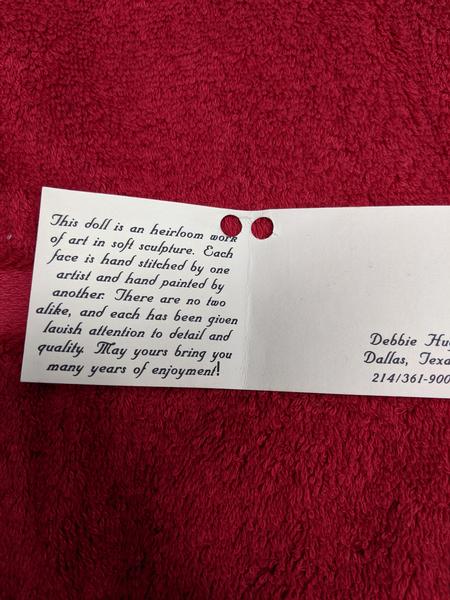 This doll is an heirloom work
of art in soft sculpture. Each
face is hand stitched by one
artist and hand painted by
another. There are no two
alike, and each has been given
lavish attention to detail and
quality. May yours bring you
many years of enjoyment!
Debbie
Dallas,